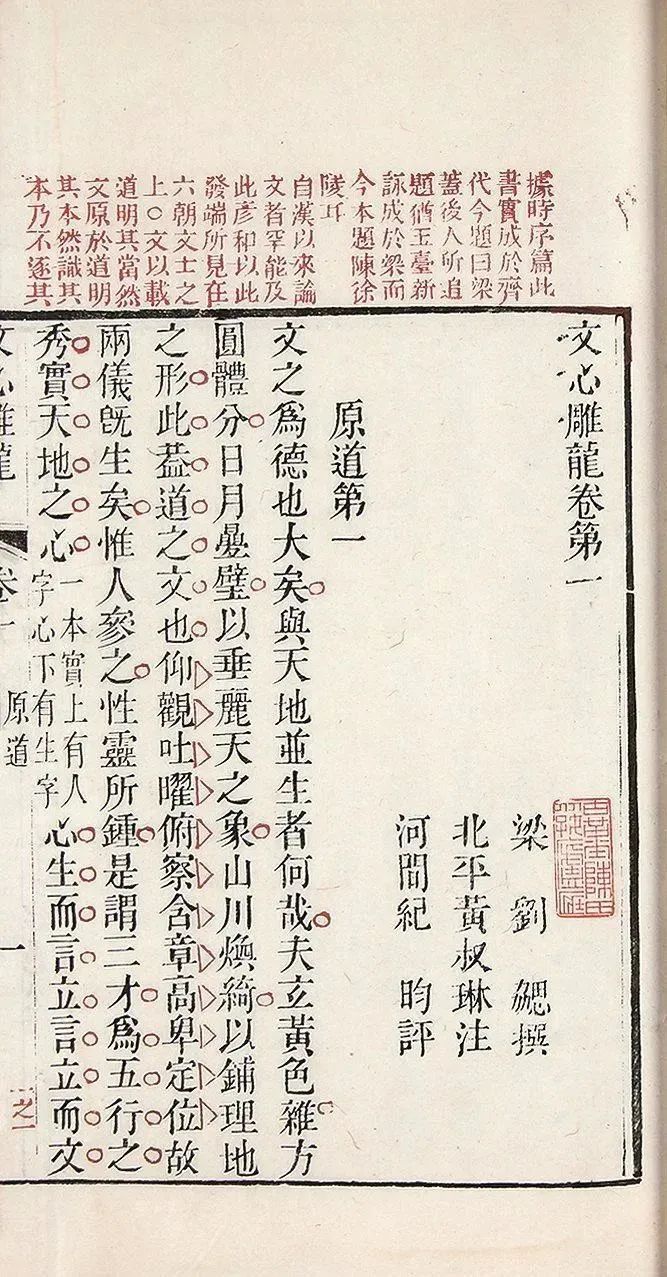 據時序篇此
書實成於齊
代今題曰梁
蓋後人所追
題猶玉臺新
詠成於梁而
今本題陳徐
陵耳
自漢以來論
文者罕能及
此彥和以此
發端所見在
六朝文士之
上○文以載
道明其當然
文原於道明
其本然識其
本乃不逐其
文心雕龍卷第一
梁 劉 勰撰
北平黃叔琳注
河間紀 昀評
原道第一
文之爲德也大矣與天地並生者何哉夫玄黃色雜方
圓體分日月疊璧以垂麗天之象山川煥綺以鋪理地
之形此葢道之文也仰觀吐曜俯察含章高卑定位故
兩儀旣生矣惟人參之性靈所鍾是謂三才爲五行之
秀實天地之心
一本實上有人
字心下有生字
心生而言立言立而文
文心雕龍
卷一
原道
一
之一